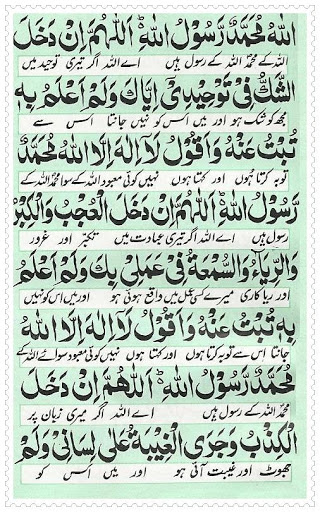 اللهُ مُحَمَّدٌ رَّسُوْلُ اللهِ ؕ اَللّٰهُمَّ اِنْ دَخَلَ
اللہ کے محمدؐ اللہ کے رسول ہیں اے اللہ اگر تیری توحید میں
الشَّكُّ فِیْ تَوْحِیْدِیْ اِیَّاكَ وَلَمْ اَعْلَمْ بِهٖ
مجھ کو شک ہو اور میں اس کو نہیں جانتا اس سے
تُبْتُ عَنْهُ وَاَقُوْلُ لَاۤ اِلٰهَ اِلَّا اللهُ مُحَمَّدٌ
توبہ کرتا ہوں اور کہتا ہوں نہیں کوئی معبود اللہ کے سوا محمدؐ اللہ کے
رَّسُوْلُ اللهِ ؕ اَللّٰهُمَّ اِنْ دَخَلَ الْعُجْبُ وَالْكِبْرُ
رسول ہیں اے اللہ اگر تیری عبادت میں تکبر اور غرور
وَالرِّیَآءُ وَالسُّمْعَةُ فِیْ عَمَلِیْ بِكَ وَلَمْ اَعْلَمْ
اور ریا کاری میرے کسی عمل میں واقع ہوئی ہو اور میں اس کو نہیں
بِهٖ تُبْتُ عَنْهُ وَاَقُوْلُ لَاۤ اِلٰهَ اِلَّا اللهُ
جانتا اس سے توبہ کرتا ہوں اور کہتا ہوں نہیں کوئی معبود سوائے اللہ کے
مُحَمَّدٌ رَّسُوْلُ اللهِ ؕ اَللّٰهُمَّ اِنْ دَخَلَ
محمدؐ اللہ کے رسول ہیں اے اللہ اگر میری زبان پر
الْكِذْبُ وَجَرَی الْغِیْبَةُ عَلٰی لِسَانِیْ وَلَمْ
جھوٹ اور غیبت آئی ہو اور میں اس کو